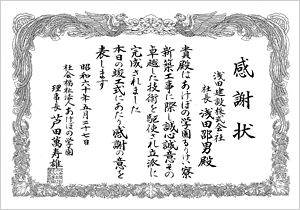 感謝状
浅田建設株式会社
社長 浅田邵男殿
貴殿はあけぼの学園るりけい寮
新築工事に際し誠心誠意その
卓越した技術を駆使され立派に
完成されました
本日の竣工式にあたり感謝の意を
表します
昭和六十年五月二十七日
社会福祉法人あけぼの学園
理事長 芦田萬寿雄